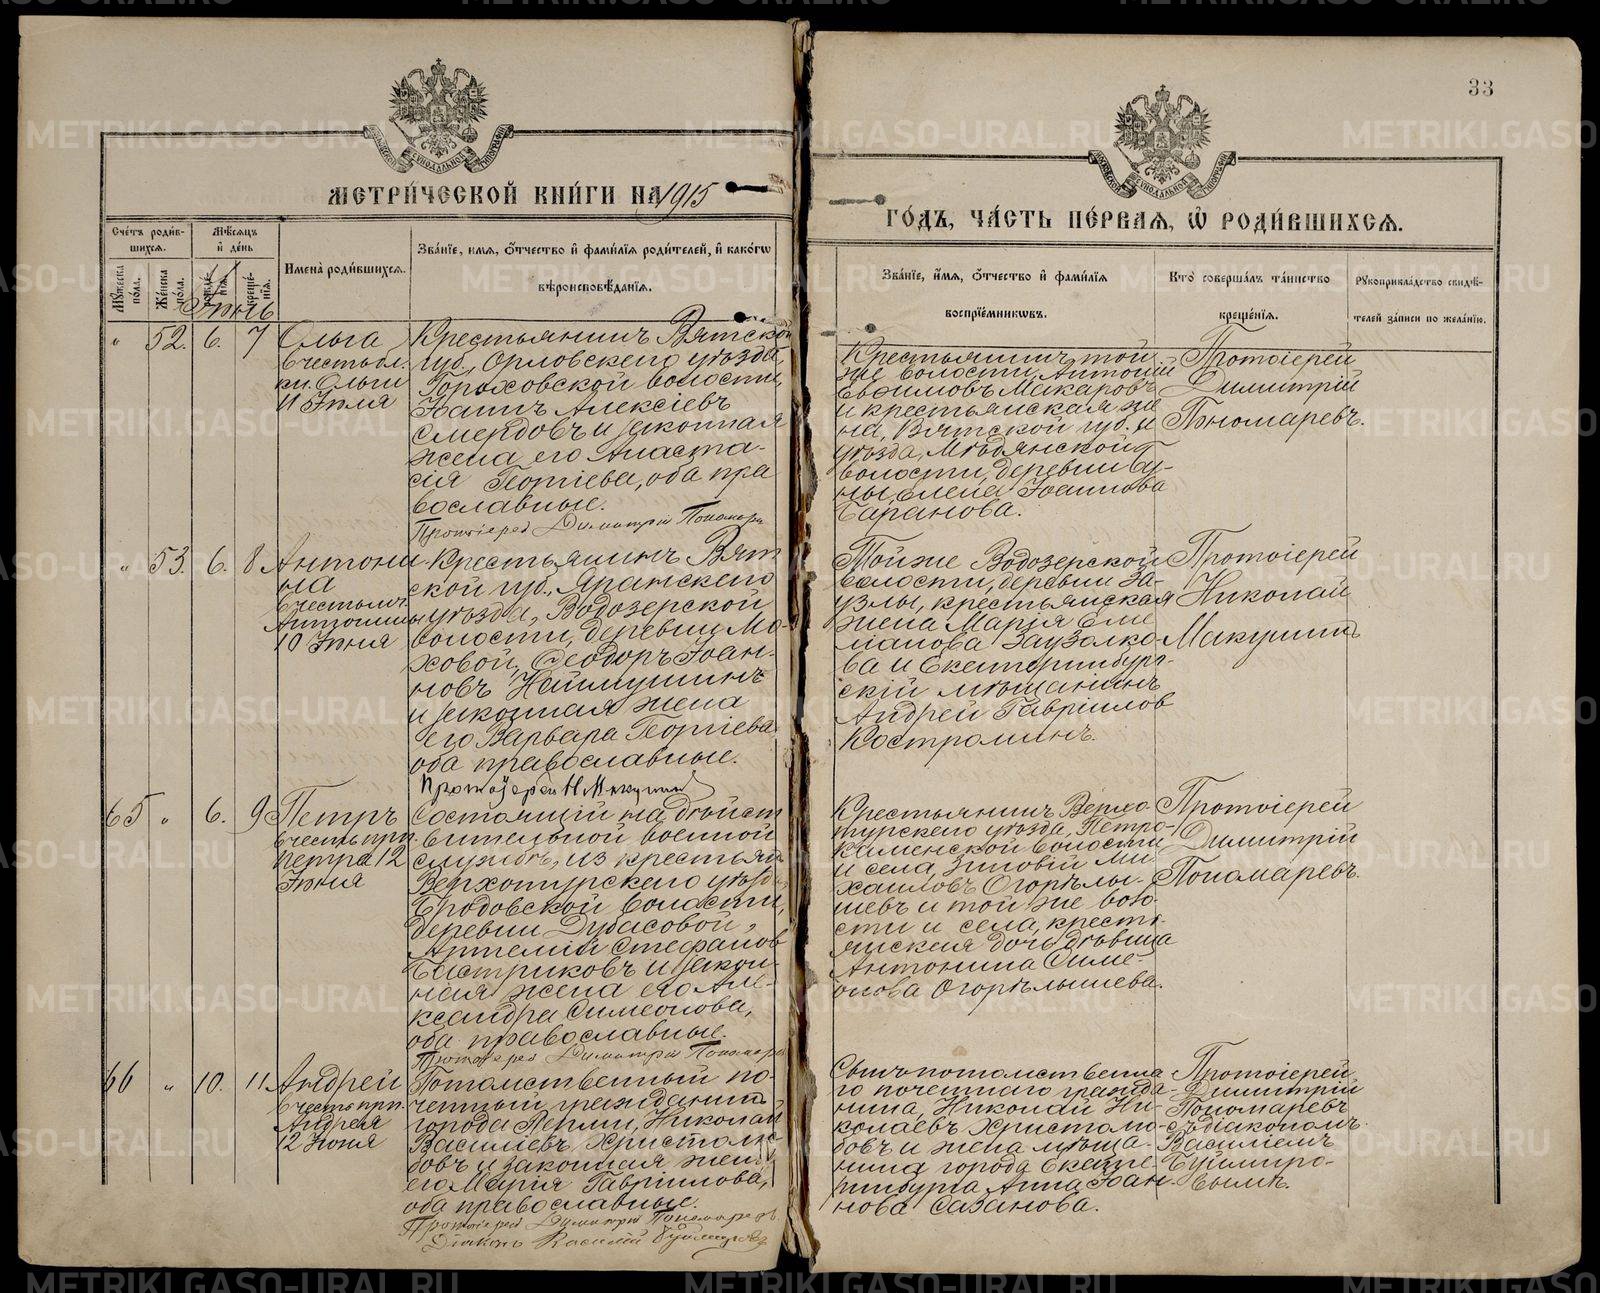 33
МЕТРИ́ЧЕСКОЙ КНИ́ГИ НА 1915
ГО́ДЪ, ЧА́СТЬ ПЕ́РВАЯ, Ѡ РОДИ́ВШИХСЯ.
Сче́тъ роди́в-
шихся.
Мѣ́сяцъ
и де́нь
Мꙋ́жеска
по́ла.
Же́нска
по́ла.
креще́-
нїя.
Имена̀ роди́вшихся.
Зва́нїе, имя, о́тчество и фами́лїя роди́телей, и како́гѡ
вѣроисповѣ́данїя.
Зва́нїе, и́мя, о́тчество и фами́лїя
воспрїе́мниковъ.
Кто̀ соверша́лъ та́инство
креще́нїя.
Рꙋкоприкла́дство свидѣ́-
телей за́писи по жела́нїю.
Іюнь
" 52. 6. 7 Ольга
въ честь бл.
кн. Ольги
11 Іюля
Крестьянинъ Вятской
губ., Орловскаго уѣзда,
Гороховской волости,
Іоаннъ Алексіевъ
Смердовъ и законная
жена его Анаста-
сія Георгіева, оба пра
вославные.
Протоіерей Димитрій Пономарев
Крестьянинъ той
же волости, Антоній
Евфимовъ Макаровъ
и крестьянская же
на, Вятской губ. и
уѣзда,
волости, деревни
ны, Елена Іоаннова
Баранова.
Протоіерей
Димитрій
Пономаревъ.
" 53. 6. 8 Антони
на
въ честь мч.
Антонины
10 Іюня
Крестьянинъ Вят
ской губ., Яранскаго
уѣзда, Водозерской
волости, деревни Мо-
ховой, Ѳеодоръ Іоан-
новъ Наймушинъ
и законная жена
его Варвара Георгіева
оба православные.
Протоіерей Н. Макушин
Той же Водозерской
волости, деревни За-
узлы, крестьянская
жена Марія Еме
ліанова Заузолко-
ва и Екатеринбург-
скій мѣщанинъ
Андрей Гавріилов
Костроминъ.
Протоіерей
Николай
Макушинъ
65 " 6. 9 Петръ
въ честь прп.
Петра 12
Іюня
Состоящій на дѣйст
вительной военной
службѣ, из крестьянъ
Верхотурскаго уѣзда,
Бродовской волости,
деревни Дубасовой,
Артемій Стефанов
Бастриковъ и закон-
ная жена его Але-
ксандра Симеонова,
оба православные.
Протоіерей Димитрій Пономарев
Крестьянинъ Верхо
турскаго уѣзда, Петро-
каменской волости
и села, Зиновій Ми-
хаиловъ Огорѣлы-
шевъ и той же воло-
сти и села, кресть-
янская дочь дѣвица
Антонина Симе-
онова Огорѣлышева.
Протоіерей
Димитрій
Пономаревъ.
66 " 10. 11. Андрей
въ честь прп.
Андрея
12 Іюня
Потомственный по-
четный гражданинъ
города Перми, Николай
Василіевъ Христолю
бовъ и законная жена
его Марія Гавріилова,
оба православные.
Протоіерей Димитрій Пономаревъ
Діаконъ Василій
Сынъ потомственна
го почетнаго гражда-
нина, Николай Ни-
колаевъ Христолю-
бовъ и жена мѣща-
нина города Екате-
ринбурга Анна Іоан-
нова Сазанова.
Протоіерей
Димитрій
Пономаревъ
съ діакономъ
Василіемъ
METRIKI.GASO-URAL.RU